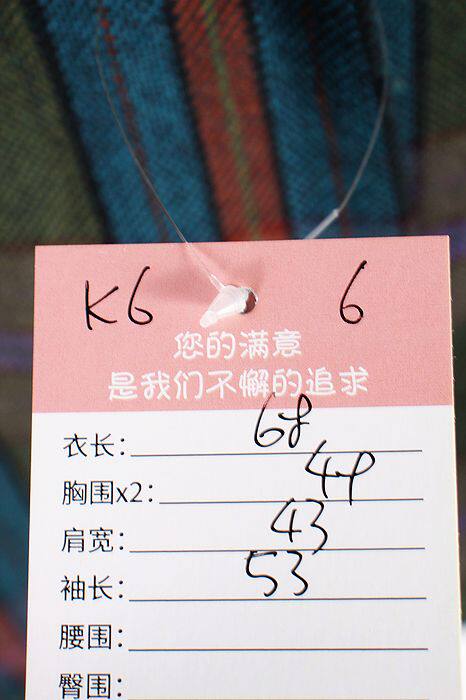 K6 6
您的满意
是我们不懈的追求
衣长: 68
胸围x2: 49
肩宽: 43
袖长: 53
腰围:
臀围: